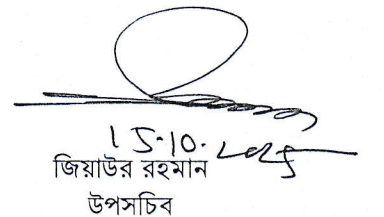 15.10.2025
জিয়াউর রহমান
উপসচিব